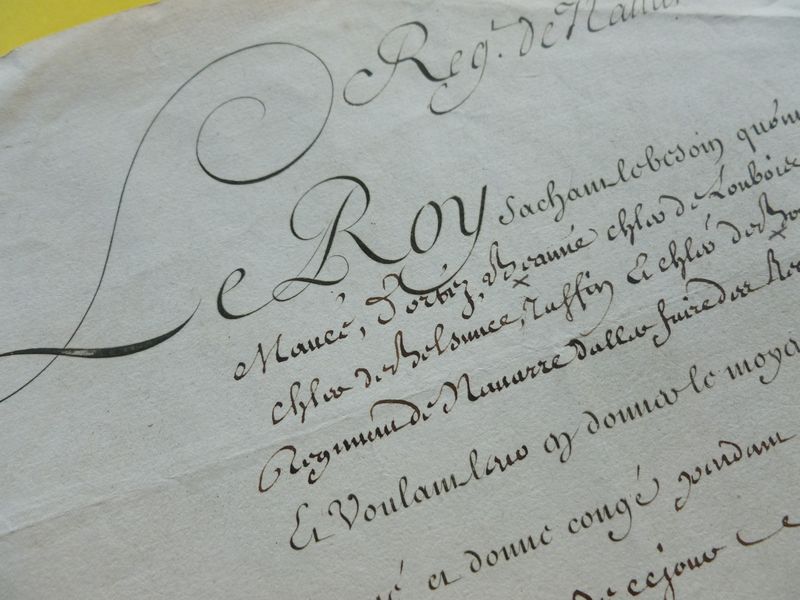 Regt. de Nava
Le Roy sachant le besoin qu'on
Maucé, D'ortez, Béarnié chlr de Loubois
chlr de Belsunce, Taffin Le chlr de
Regiment de Navarre d'aller faire des Re
Et Voulant leur en donner le moya
é et donne congé pendant
de ce jour